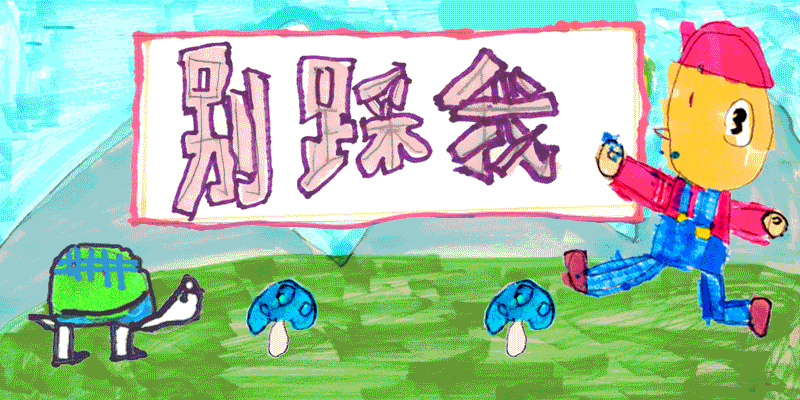 别踩我